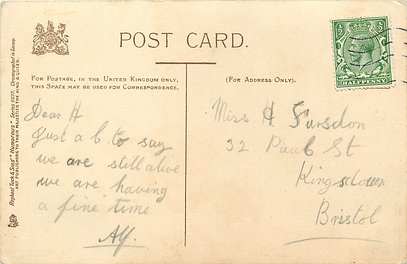 POST CARD.
FOR POSTAGE, IN THE UNITED KINGDOM ONLY,
THIS SPACE MAY BE USED FOR CORRESPONDENCE.
(FOR ADDRESS ONLY).
Dear H
Just a b. to say
we are still alive
we are having
a fine time.
Alf.
Miss H
32 Paul St
Kingsdown
Bristol
Raphael Tuck & Sons'
ART PUBLISHERS TO THEIR MAJESTIES THE KING & QUEEN.